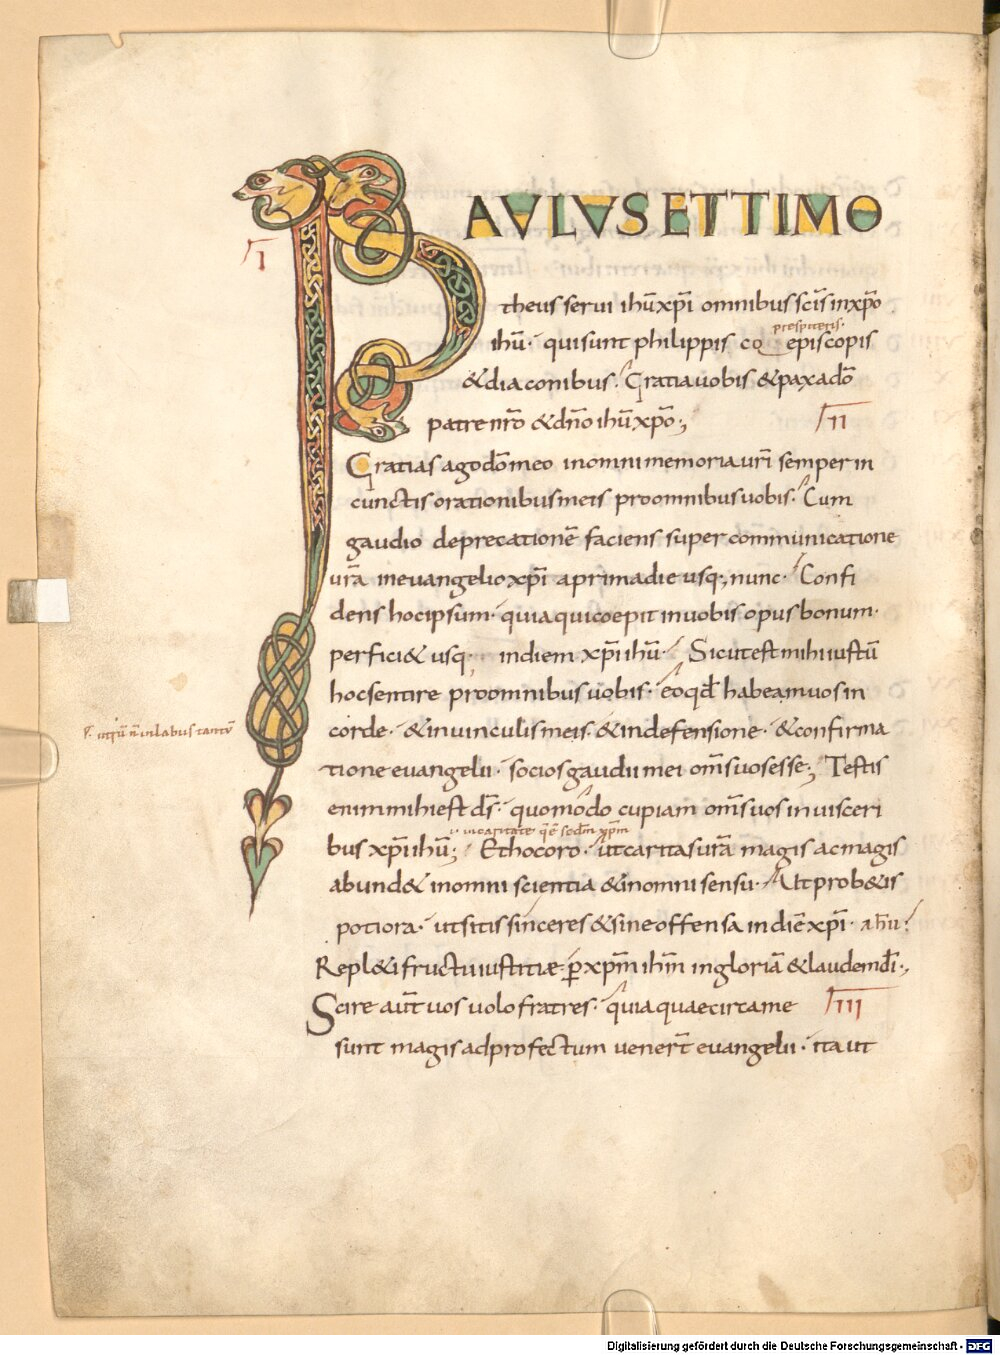 PAULUS ET TIMO
I
theus serui ihū xp̄i omnibus sc̄is in xp̄o
prespiteris·
ihū· qui sunt philippis co episcopis
& diaconibus· Gratia uobis & pax a dō
patre nr̄o & dn̄o ihū xp̄o;
II
Gratias ago dō meo in omni memoria ur̄i semper in
cunctis orationibus meis pro omnibus uobis· Cum
gaudio deprecationē faciens super communicatione
ur̄a in euangelio xp̄i a prima die usq; nunc· Confi
dens hoc ipsum· quia qui coepit in uobis opus bonum·
perfici& usq· in diem xp̄i ihū· Sicut est mihi iustū
hoc sentire pro omnibus uobis· eo qd̄ habeam uos in
corde· & in uinculis meis· & in defensione· & confirma
tione euangelii· socios gaudii mei om̄s uos esse; Testis
enim mihi est ds̄· quomodo cupiam om̄s uos in uisceri
in caritate q̄ē secdm̄ xp̄m
bus xp̄i ihū; Et hoc oro· ut caritas ur̄a magis ac magis
abund& in omni scientia & in omni sensu· Ut prob&is
potiora· ut sitis sinceres & sine offensa in diē xp̄i·
Repl&i fructu iustitiæ p̄ xp̄m ihm̄ in gloriā & laudem dī·,
Scire aut̄ uos uolo fratres· quia quae circa me
III
sunt magis ad profectum uener̄t euangelii· ita ut
Digitalisierung gefördert durch die Deutsche Forschungsgemeinschaft - DFG